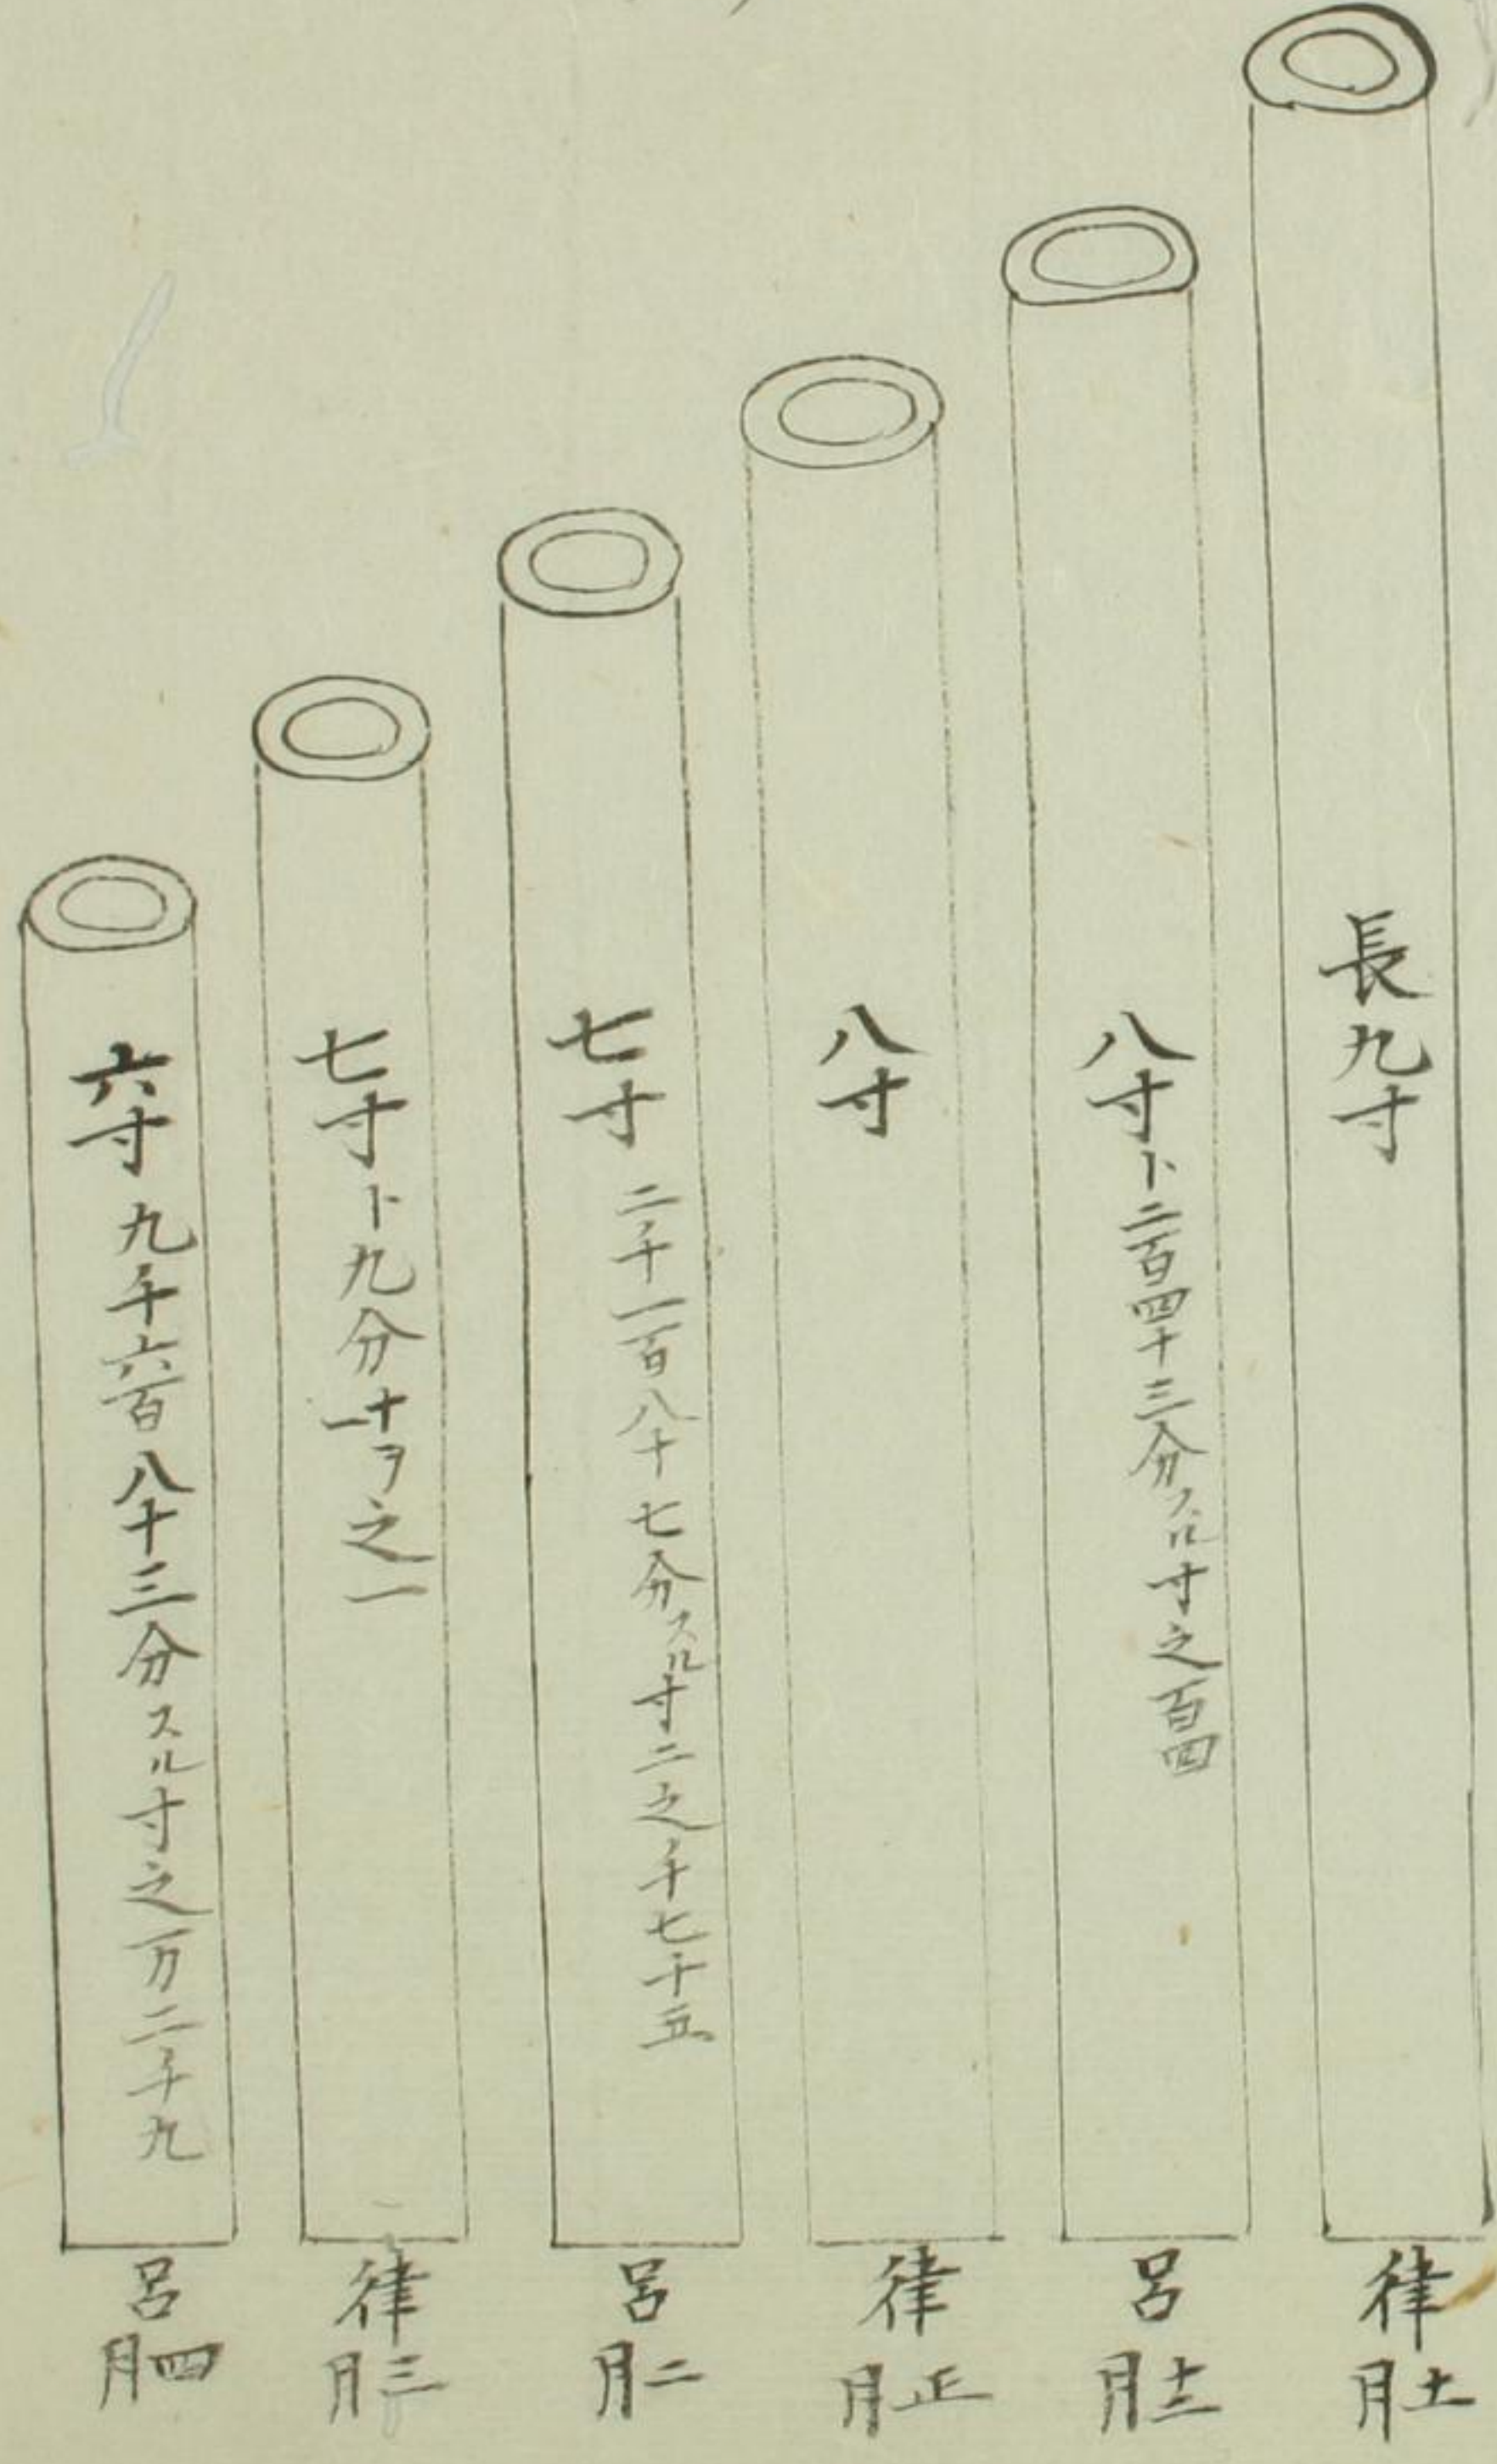 長九寸
律
十一月
八寸ト二百四十三分スル寸之百四
呂
十二月
八寸
律
正月
七寸 二千一百八十七分スル寸二之千七十五
呂
二月
七寸ト九分 之一
律
三月
六寸九千六百八十三分スル寸之万二千九
呂
四月